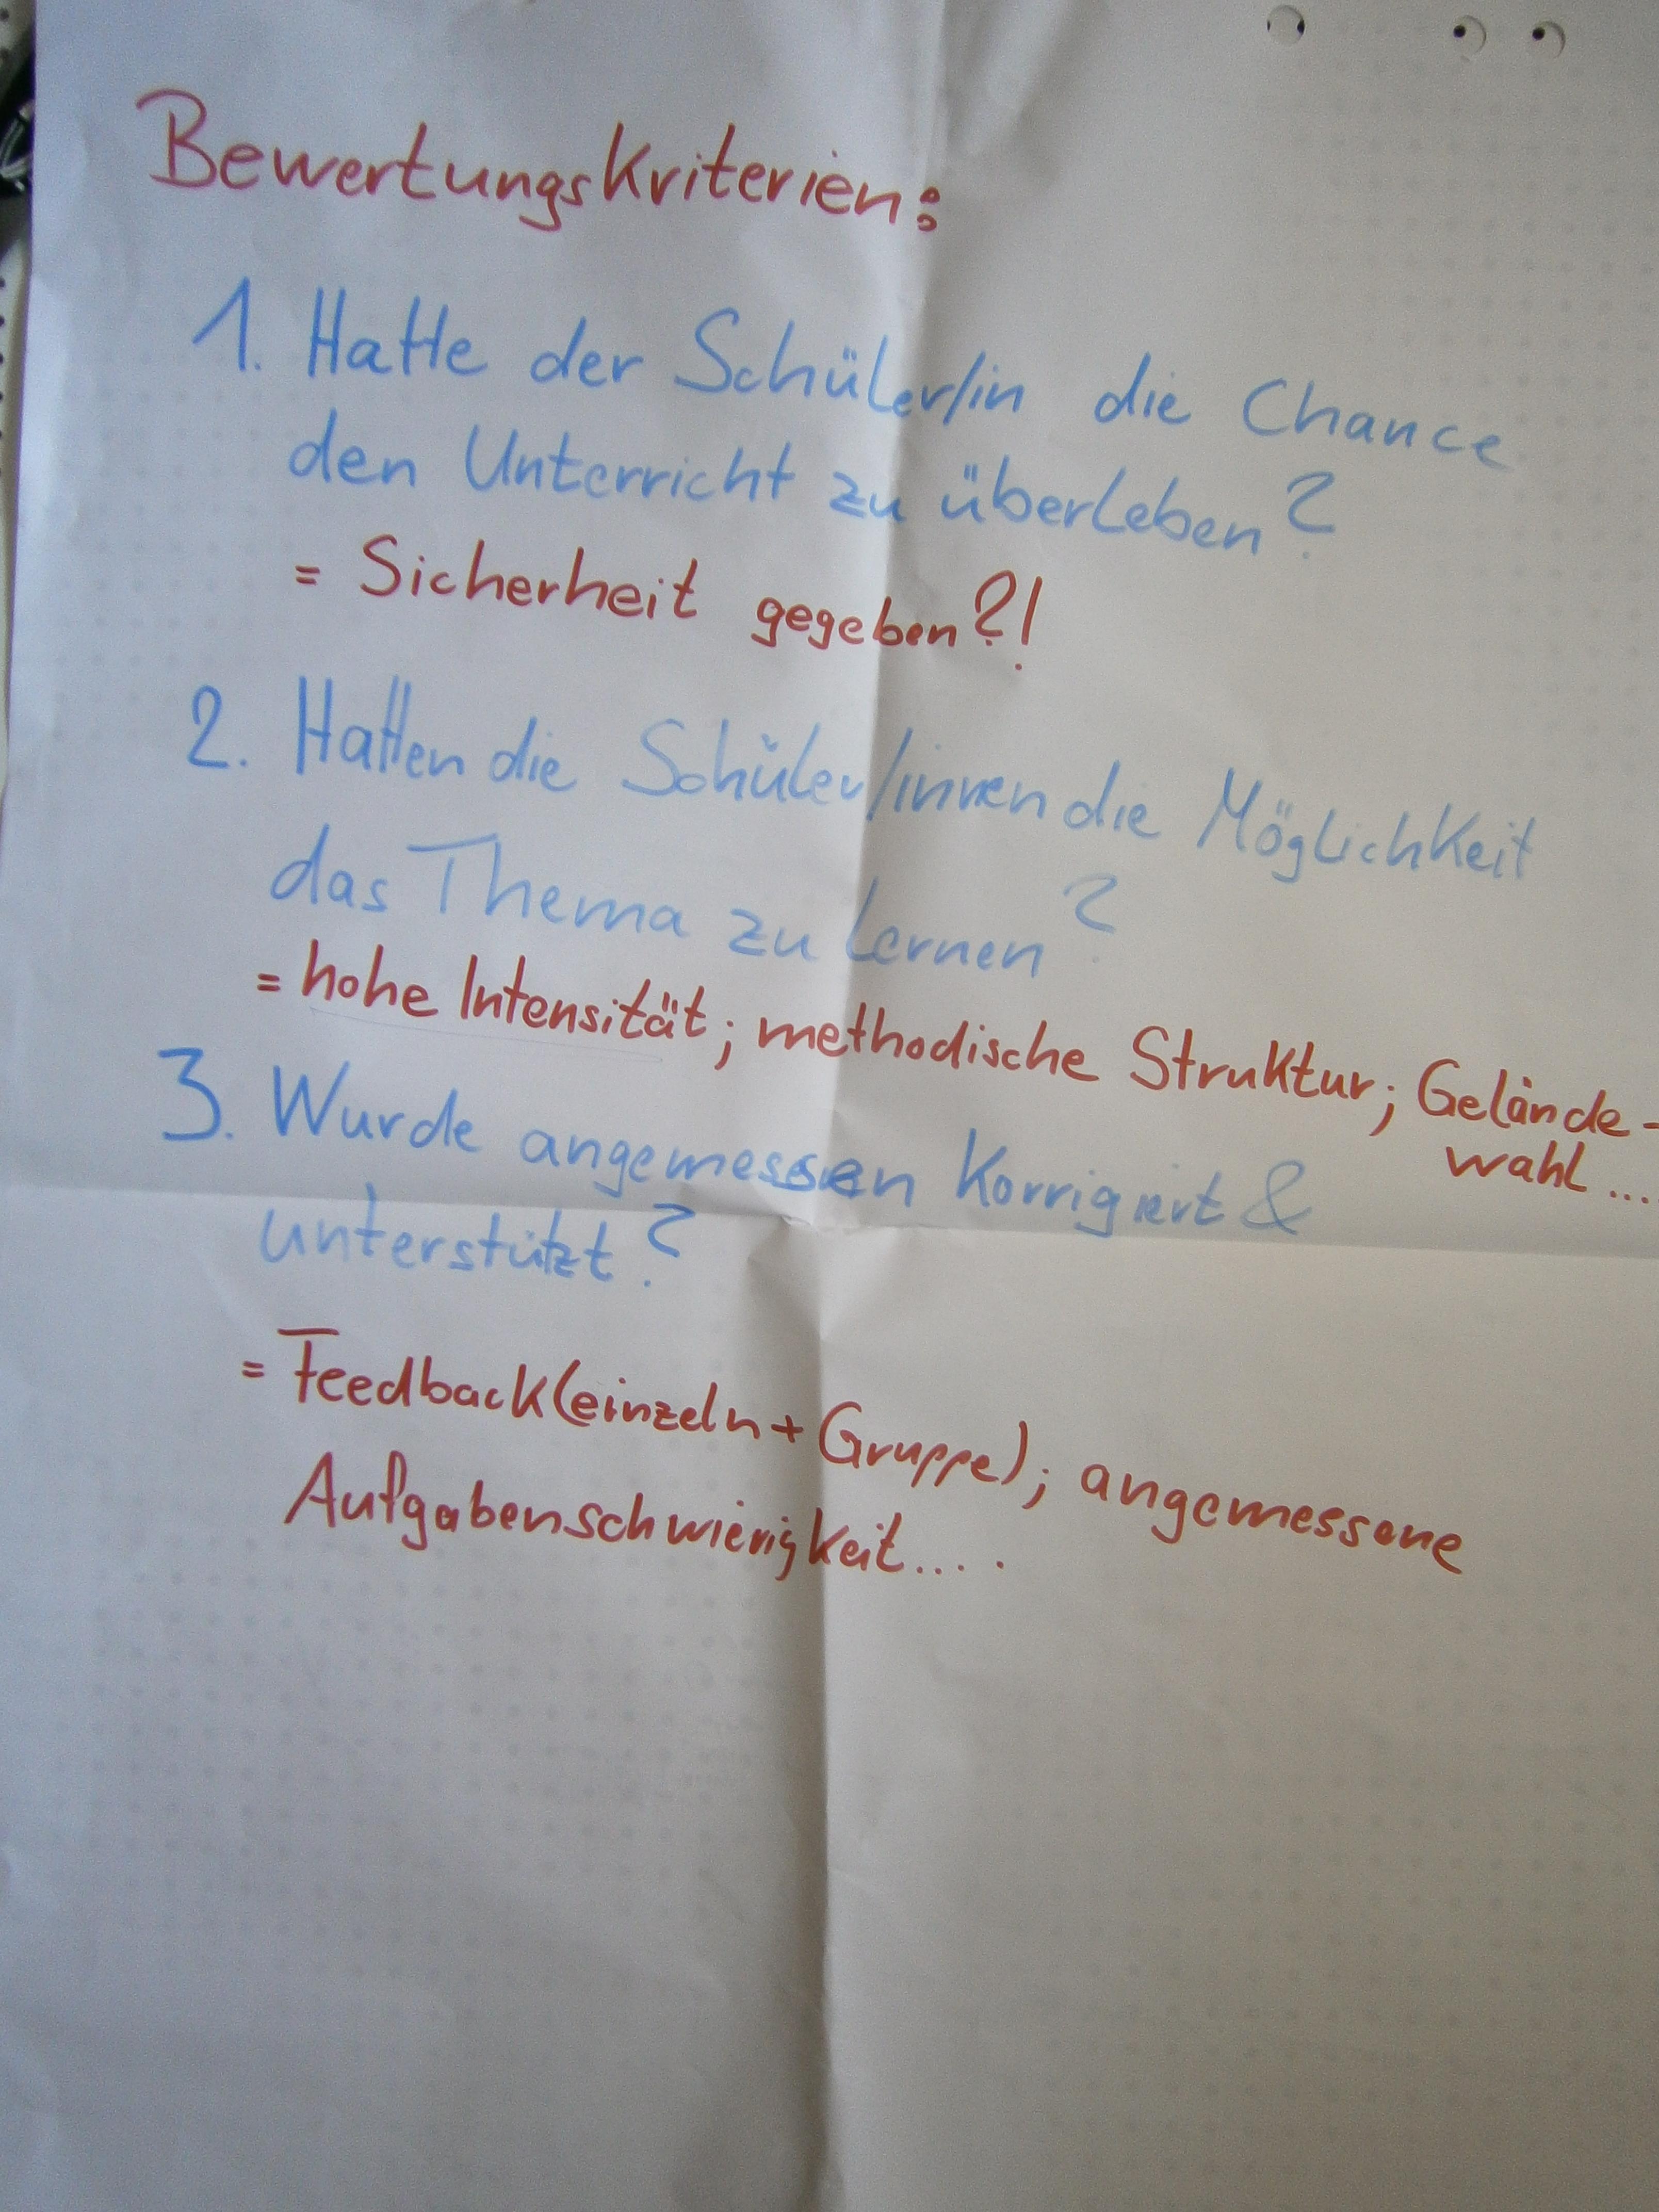 Bewertungskriterien:
1. Hatte der Schüler/in die Chance
den Unterricht zu überleben?
= Sicherheit gegeben?!
2. Hatten die Schüler/innen die Möglichkeit
das Thema zu lernen?
= hohe Intensität; methodische Struktur; Gelände-
wahl...
3. Wurde angemessen korrigiert &
unterstützt?
= Feedback (einzeln + Gruppe); angemessene
Aufgabenschwierigkeit....